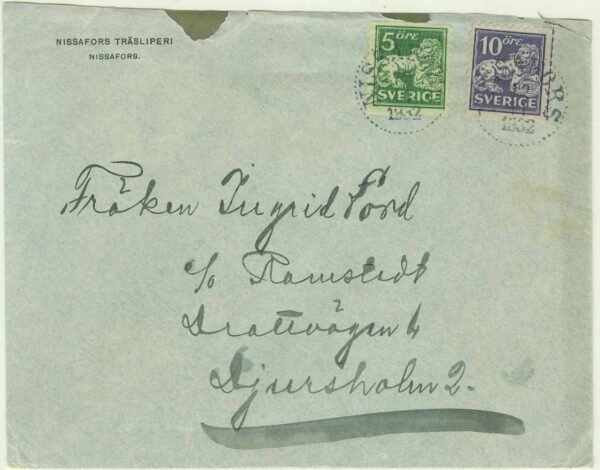 NISSAFORS TRÄSLIPERI
NISSAFORS.
5 ÖRE
SVERIGE
10 ÖRE
SVERIGE
1932
1932
Fröken Ingrid Förd
c/o Ramstedt
Drottvägen 4
Djursholm 2.